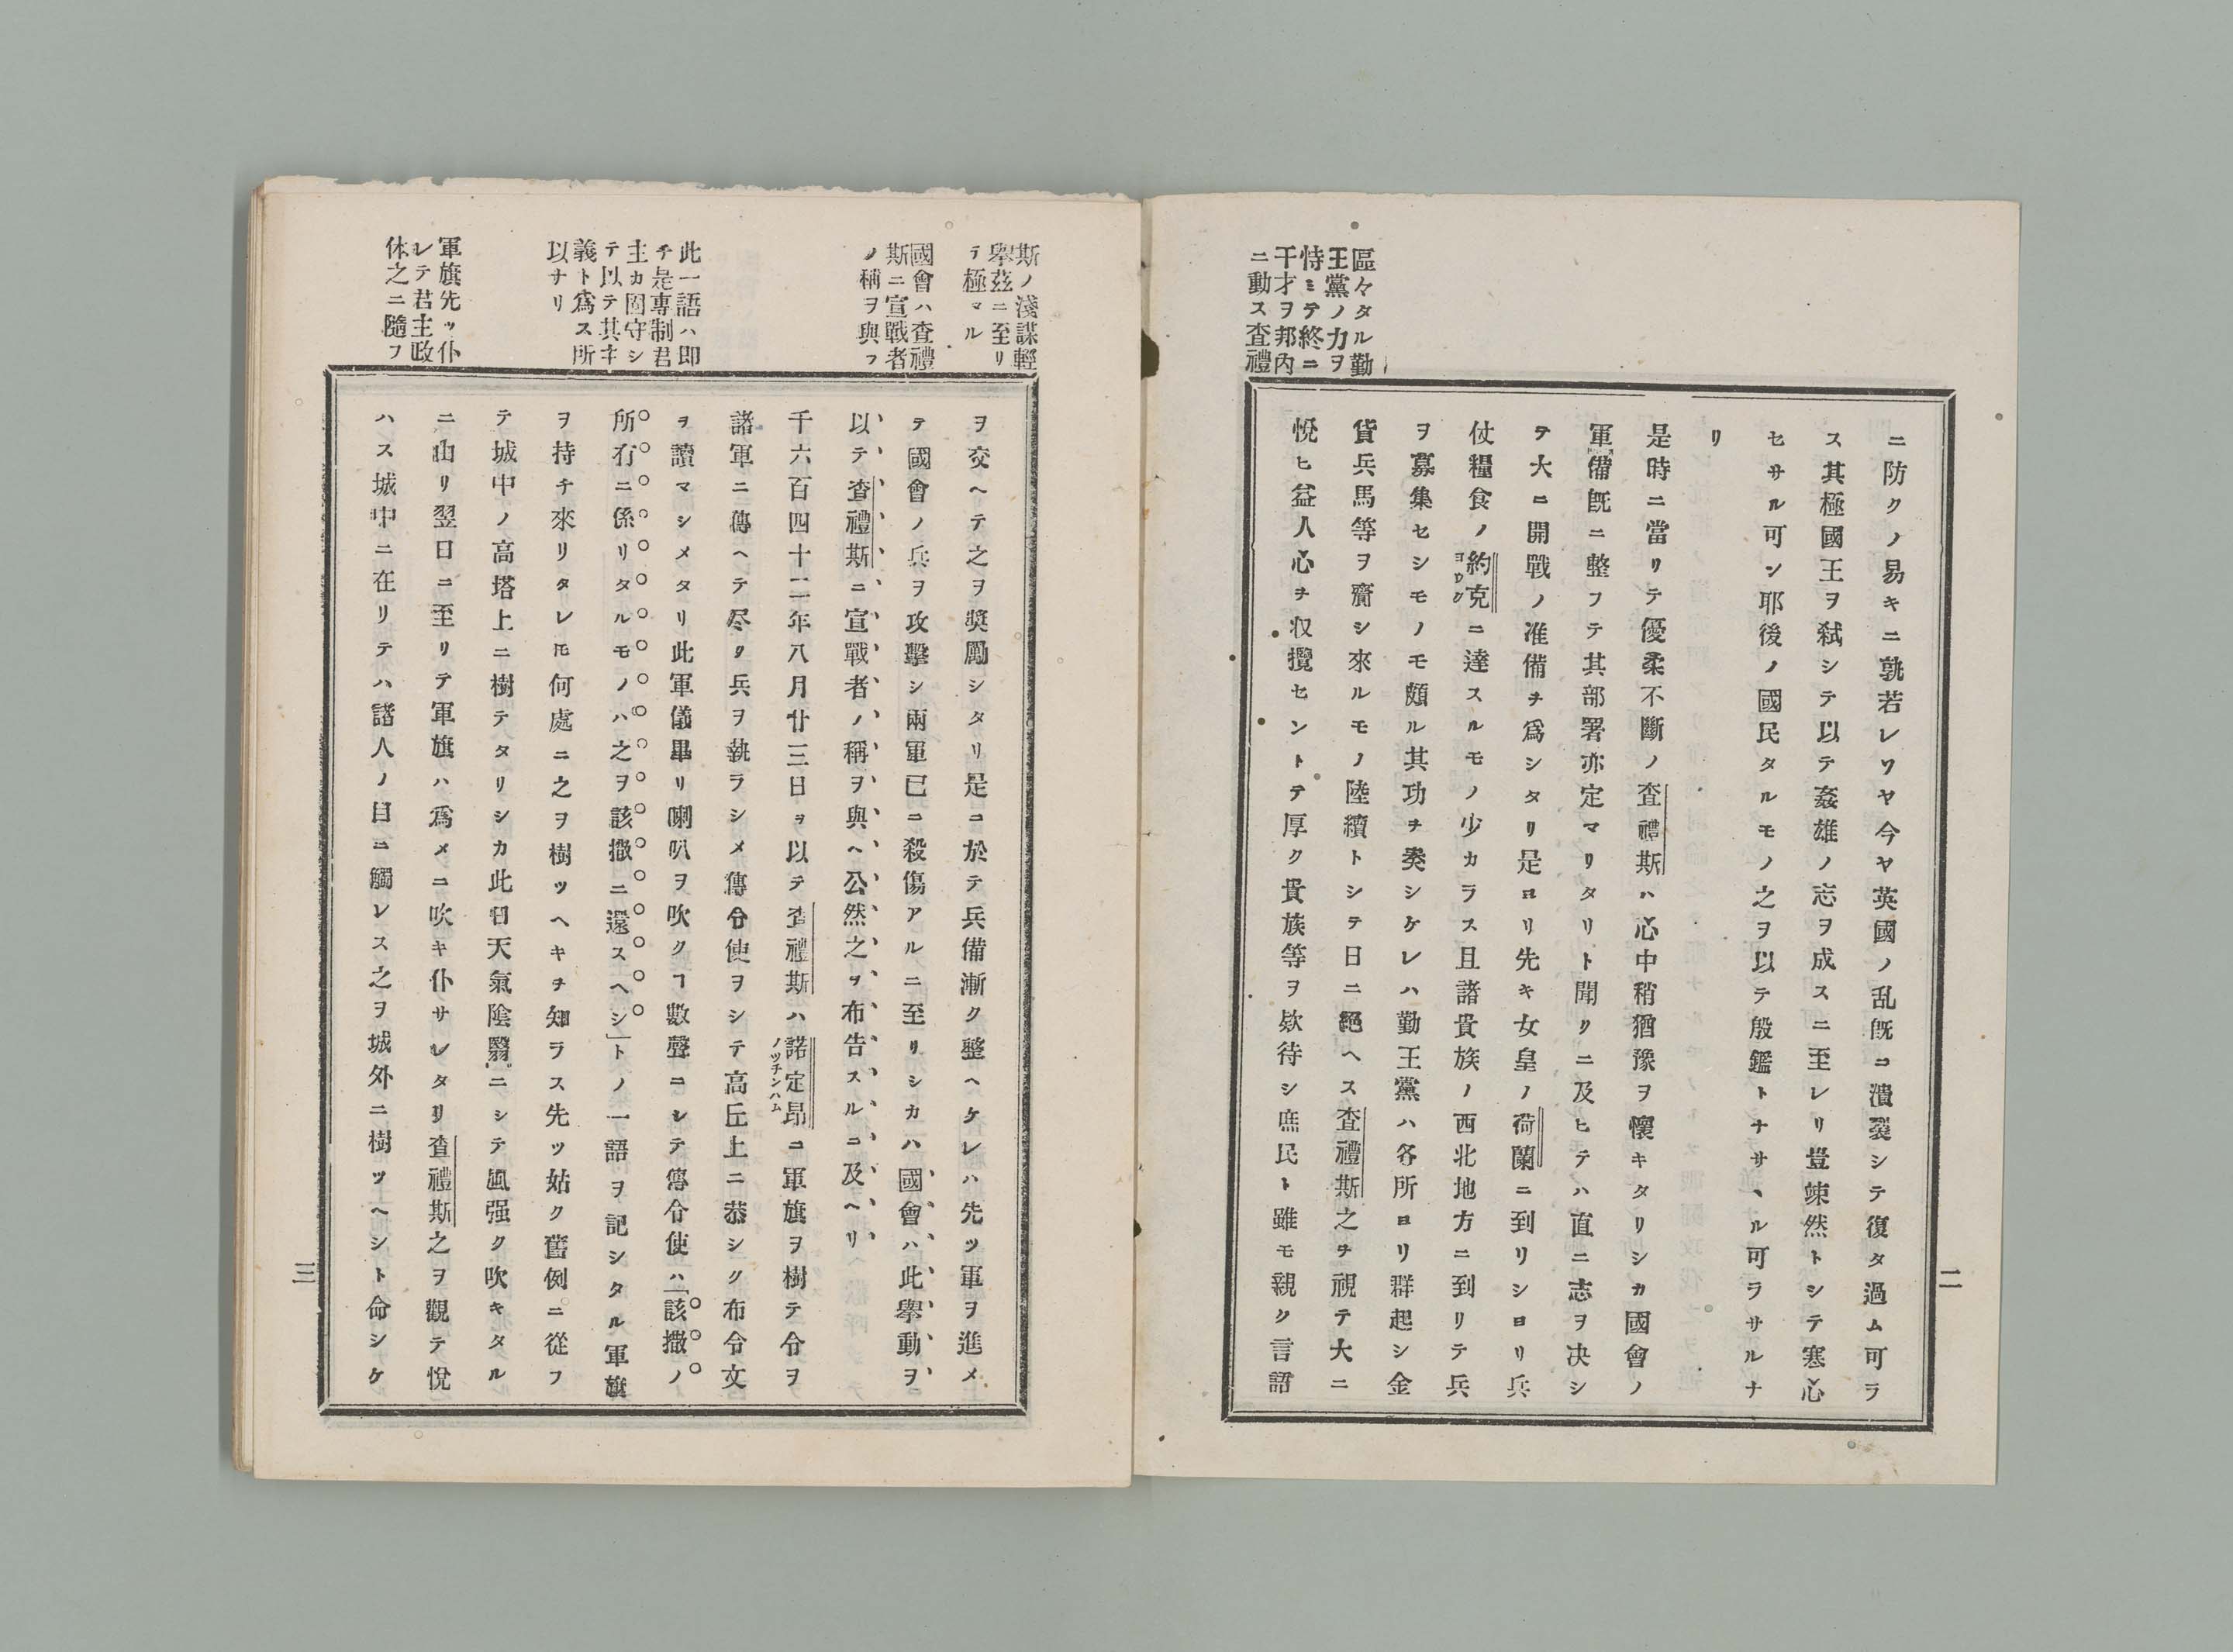 ニ防クノ易キニ孰若レソヤ今ヤ英國ノ乱既ニ潰裂シテ復タ過ム可ラ
ス其極國王ヲ弑シテ以テ姦雄ノ志ヲ成スニ至レリ豈竦然トシテ寒心
セサル可ン耶後ノ國民タルモノ之ヲ以テ殷鑑トナサヽル可ラサルナ
リ
是時ニ當リテ優柔不斷ノ査禮斯ハ心中稍猶豫ヲ懷キタリシカ國會ノ
軍備既ニ整フテ其部署亦定マリタリト聞クニ及ヒテハ直ニ志ヲ决シ
テ大ニ開戰ノ准備ヲ爲シタリ是ヨリ先キ女皇ノ荷蘭ニ到リシヨリ兵
仗糧食ノ約克ニ達スルモノ少カラス且諸貴族ノ西北地方ニ到リテ兵
ヨウク
ヲ募集セシモノモ頗ル其功ヲ奏シケレハ勤王黨ハ各所ヨリ群起シ金
貨兵馬等ヲ齎シ來ルモノ陸續トシテ日ニ絕ヘス査禮斯之ヲ視テ大ニ
悅ヒ益人心ヲ収攬セントテ厚ク貴族等ヲ欵待シ庶民ト雖モ親ク言語
區々タル勤
王黨ノ力ヲ
恃ミテ終ニ
干才ヲ邦內
ニ動ス査禮
二
斯ノ淺謀輕
擧茲ニ至リ
テ極マル
國會ハ査禮
斯ニ宣戰者
ノ稱ヲ與フ
此一語ハ即
チ是專制君
主カ固守シ
テ以テ其主
義ト爲ス所
以ナリ
軍旗先ッ仆
レテ君主政
休之ニ隨フ
ヲ交ヘテ之ヲ奬勵シタリ是ニ於テ兵備漸ク整ヘケレハ先ッ軍ヲ進メ
テ國會ノ兵ヲ攻擊シ兩軍已ニ殺傷アルニ至リシカハ國會ハ此擧動ヲ
以テ査禮斯ニ宣戰者ノ稱ヲ與ヘ公然之ヲ布告スルニ及ヘリ
千六百四十二年八月廿三日ヲ以テ査禮斯ハ諾定昂ニ軍旗ヲ樹テ令ヲ
ノッチンハム
諸軍ニ傳ヘテ尽ク兵ヲ執ラシメ傳令使ヲシテ高丘上ニ恭シク布令文
ヲ讀マシメタリ此軍儀畢リ喇叭ヲ吹クヿ數聲ニシテ傳令使ハ「該撒ノ
所有ニ係リタルモノハ之ヲ該撒ニ還スヘシ」トノ一語ヲ記シタル軍旗
ヲ持チ來リタレ𪜈何處ニ之ヲ樹ッヘキヲ知ラス先ッ姑ク舊例ニ從フ
テ城中ノ高塔上ニ樹テタリシカ此日天氣陰翳ニシテ風强ク吹キタル
ニ由リ翌日ニ至リテ軍旗ハ爲メニ吹キ仆サレタリ査禮斯之ヲ觀テ悅
ハス城中ニ在リテハ諸人ノ目ニ觸レス之ヲ城外ニ樹ッヘシト命シケ
三